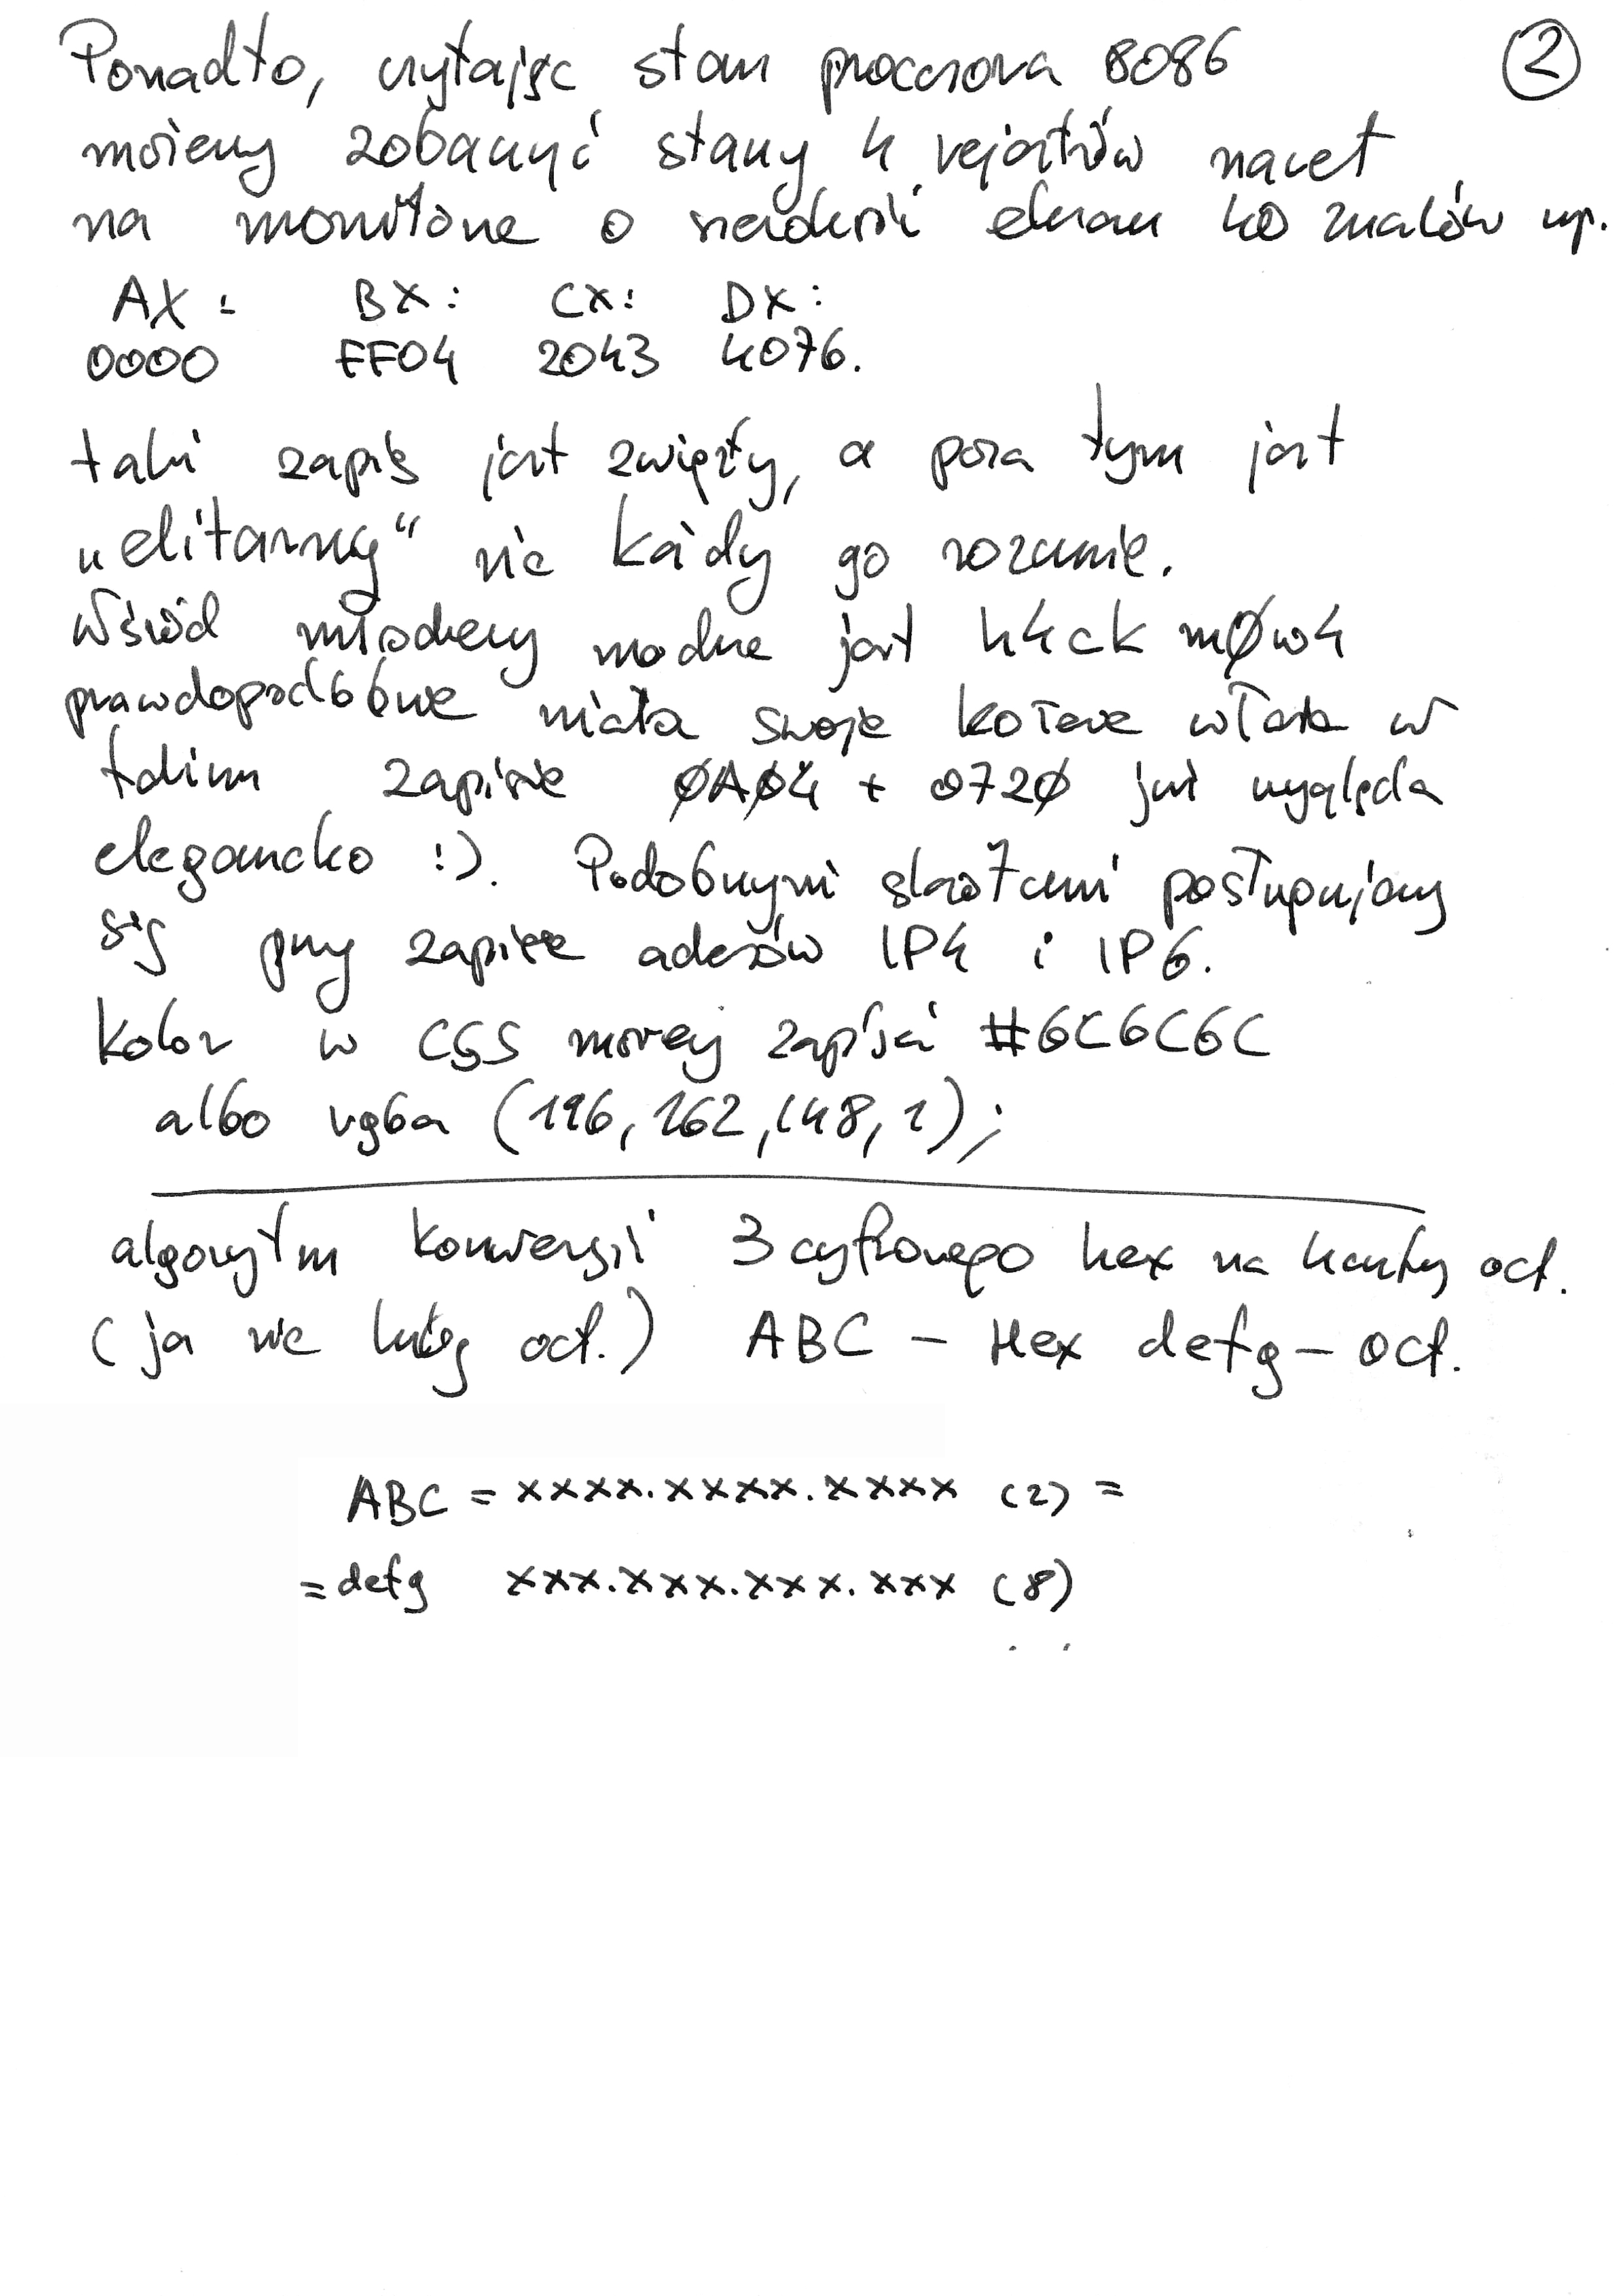 Ponadto, czytając stan procesora 8086 ②
możemy zobaczyć stany 4 rejestrów nawet
na monitorze o szerokości ekranu 40 znaków np.
AX: BX: CX: DX:
0000 FF04 2043 4076.
taki zapis jest zwięzły, a poza tym jest
„elitarny“ nie każdy go rozumie.
Wśród młodzieży modne jest h4ck mØw4
prawdopodobnie miała swoje korzenie właśnie w
takim zapisie ØAØ4 + 072Ø już wygląda
elegancko :). Podobnymi skrótami posługujemy
się przy zapisie adresów IP4 i IP6.
Kolor w CSS możesz zapisać #6C6C6C
albo rgba (196, 162, 148, 1);
algorytm konwersji 3 cyfrowego hex na kwarty oct.
(ja nie lubię oct.) ABC – Hex defg – oct.
ABC = xxxx.xxxx.xxxx (2) =
= defg xxx.xxx.xxx.xxx (8)